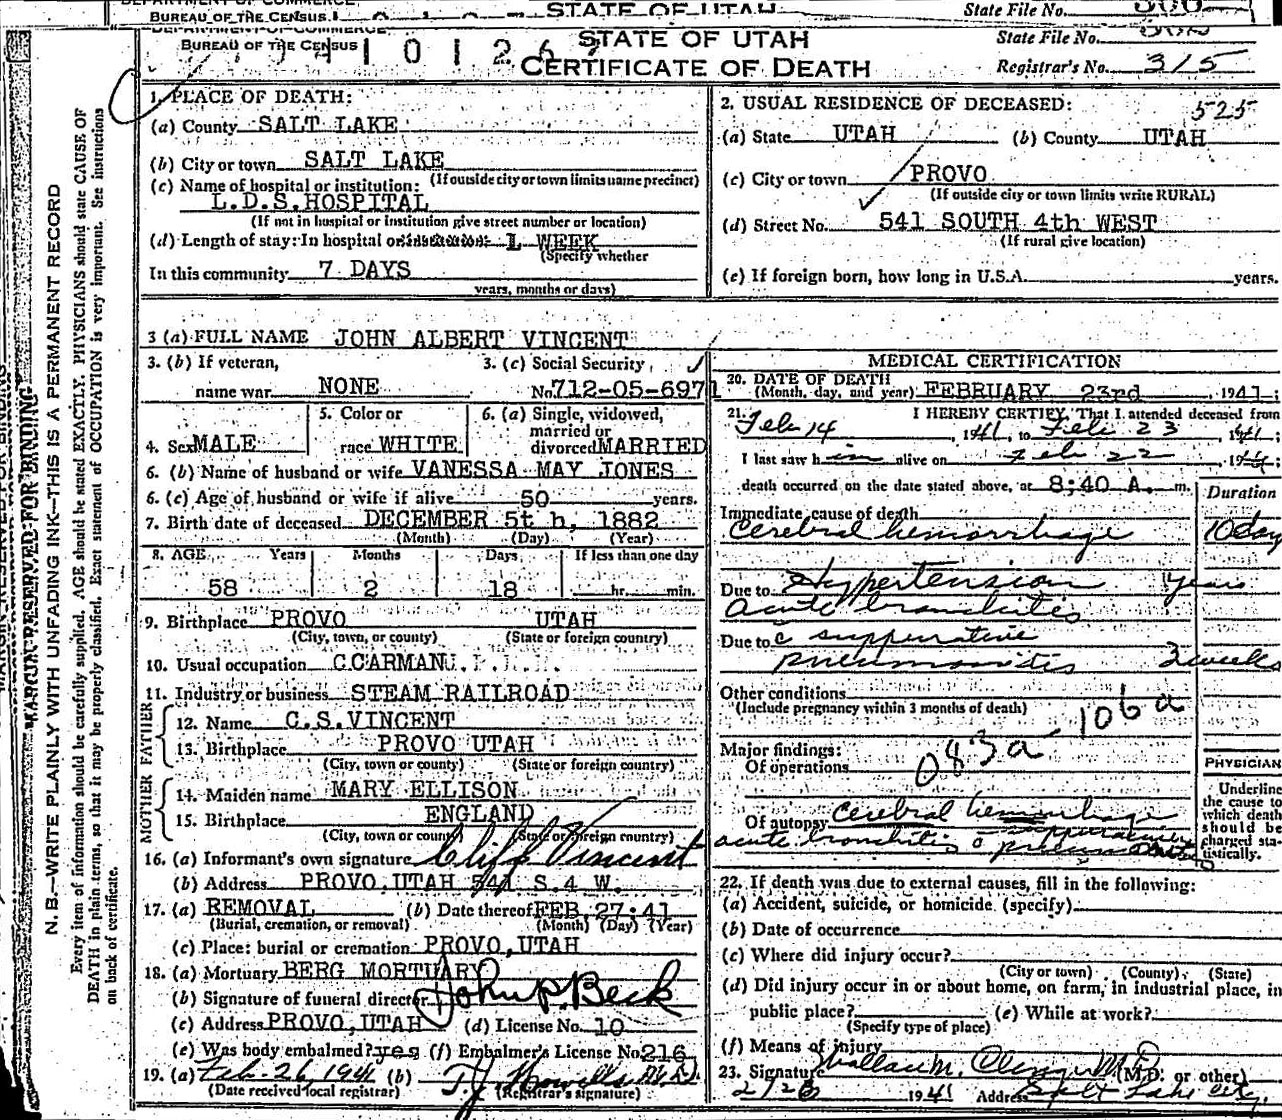 STATE OF UTAH
State File No.
BUREAU OF THE CENSUS
STATE OF UTAH
State File No.
BUREAU OF THE CENSUS
CERTIFICATE OF DEATH
Registrar's No. 315
MARGIN RESERVED FOR BINDING
N. B.—WRITE PLAINLY WITH UNFADING INK—THIS IS A PERMANENT RECORD
Every item of information should be carefully supplied. AGE should be stated EXACTLY. PHYSICIANS should state CAUSE OF
DEATH in plain terms, so that it may be properly classified. Exact statement of OCCUPATION is very important. See instructions
on back of certificate.
1. PLACE OF DEATH:
(a) County SALT LAKE
(b) City or town SALT LAKE
(If outside city or town limits name precinct)
(c) Name of hospital or institution:
L.D.S.HOSPITAL
(If not in hospital or institution give street number or location)
(d) Length of stay: In hospital or 1 WEEK
(Specify whether
In this community 7 DAYS
years, months or days)
2. USUAL RESIDENCE OF DECEASED: 525
(a) State UTAH (b) County UTAH
(c) City or town PROVO
(If outside city or town limits write RURAL)
(d) Street No. 541 SOUTH 4th WEST
(If rural give location)
(e) If foreign born, how long in U.S.A. years.
3 (a) FULL NAME JOHN ALBERT VINCENT
3. (b) If veteran, 3. (c) Social Security
name war NONE No. 712-05-6971
4. Sex MALE
5. Color or
race WHITE
6. (a) Single, widowed,
married or
divorced MARRIED
6. (b) Name of husband or wife VANESSA MAY JONES
6. (c) Age of husband or wife if alive 50 years.
7. Birth date of deceased DECEMBER 5t h, 1882
(Month) (Day) (Year)
8. AGE Years Months Days If less than one day
58 2 18 hr. min.
9. Birthplace PROVO UTAH
(City, town, or county) (State or foreign country)
10. Usual occupation CCARMAN
11. Industry or business STEAM RAILROAD
FATHER
12. Name C.S.VINCENT
13. Birthplace PROVO UTAH
(City, town or county) (State or foreign country)
MOTHER
14. Maiden name MARY ELLISON
15. Birthplace ENGLAND
(City, town or county) (State or foreign country)
16. (a) Informant's own signature Cliff Vincent
(b) Address PROVO,UTAH 541 S.4 W.
17. (a) REMOVAL (b) Date thereof FEB.27:41
(Burial, cremation, or removal) (Month) (Day) (Year)
(c) Place: burial or cremation PROVO,UTAH
18. (a) Mortuary BERG MORTUARY
(b) Signature of funeral director John P. Beck
(c) Address PROVO,UTAH (d) License No. 10
(e) Was body embalmed? yes (f) Embalmer's License No. 216
19. (a) Feb. 26, 1941 (b) T.J. Howells M.D.
(Date received local registrar) (Registrar's signature)
MEDICAL CERTIFICATION
20. DATE OF DEATH
(Month, day, and year) FEBRUARY 23rd, 1941;
21. I HEREBY CERTIFY, That I attended deceased from
Feb 14, 1941, to Feb 23, 1941;
I last saw him alive on Feb 22, 1941;
death occurred on the date stated above, at 8:40 A. m.
Duration
Immediate cause of death
Cerebral hemorrhage 10 day
Due to Hypertension years
acute bronchitis
Due to c suppurative
pneumonitis 3 weeks
Other conditions
(Include pregnancy within 3 months of death)
106a
Major findings:
Of operations
083a
PHYSICIAN
Underline
the cause to
which death
should be
charged sta-
tistically.
Of autopsy Cerebral hemorrhage
acute bronchitis c suppurative pneumonitis
22. If death was due to external causes, fill in the following:
(a) Accident, suicide, or homicide (specify)
(b) Date of occurrence
(c) Where did injury occur?
(City or town) (County) (State)
(d) Did injury occur in or about home, on farm, in industrial place, in
public place? (e) While at work?
(Specify type of place)
(f) Means of injury
23. Signature M.D. (M.D. or other)
1941 Address Salt Lake City.